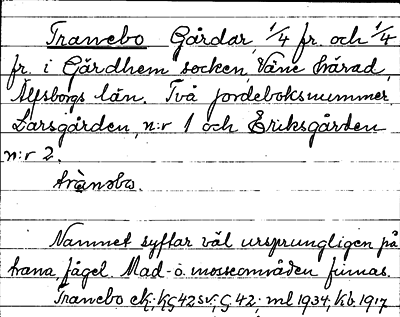 Tranebo Gårdar, 1/4 fr. och 1/4
fr. i Gärdhem socken, Väne härad,
Älfsborgs län. Två jordeboksnummer
Larsgården, n:r 1 och Eriksgården
n:r 2.
trànebo.
Namnet syftar väl ursprungligen på
trana fågel. Mad- o. mosseområden finnas.
Tranebo ek; kG42sv; G 42; ml 1934, kb. 1917